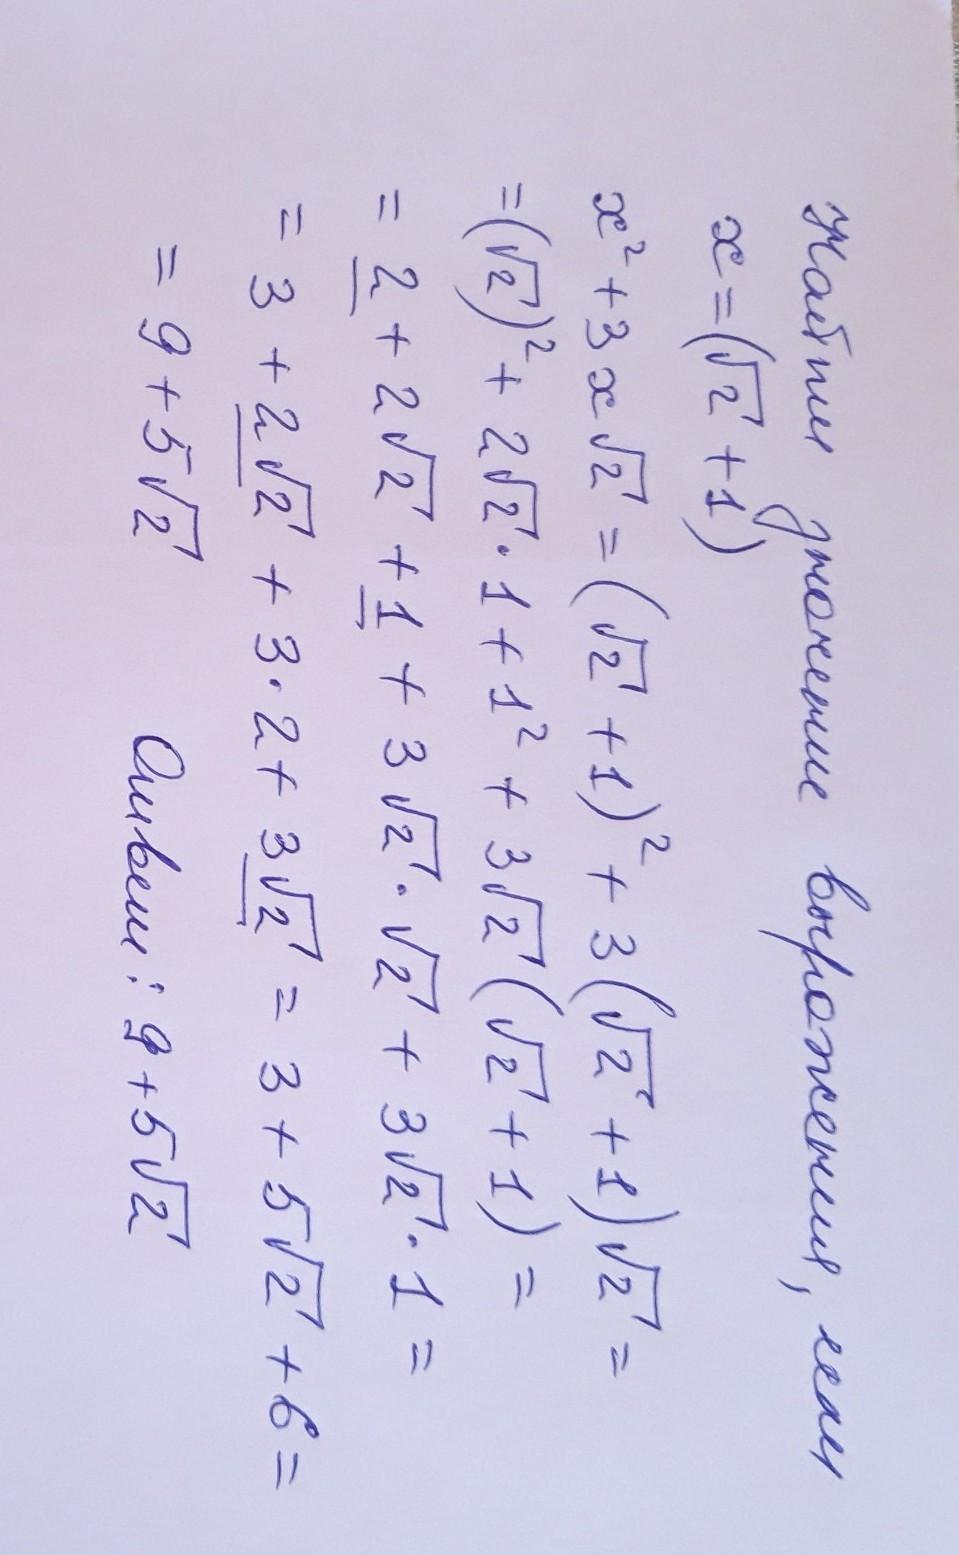 Найти значение выражения, если
x = (√2 + 1)
x² + 3x√2 = (√2 + 1)² + 3(√2 + 1)√2 =
= (√2)² + 2√2 · 1 + 1² + 3√2(√2 + 1) =
= 2 + 2√2 + 1 + 3√2 · √2 + 3√2 · 1 =
= 3 + 2√2 + 3 · 2 + 3√2 = 3 + 5√2 + 6 =
= 9 + 5√2 Ответ: 9 + 5√2